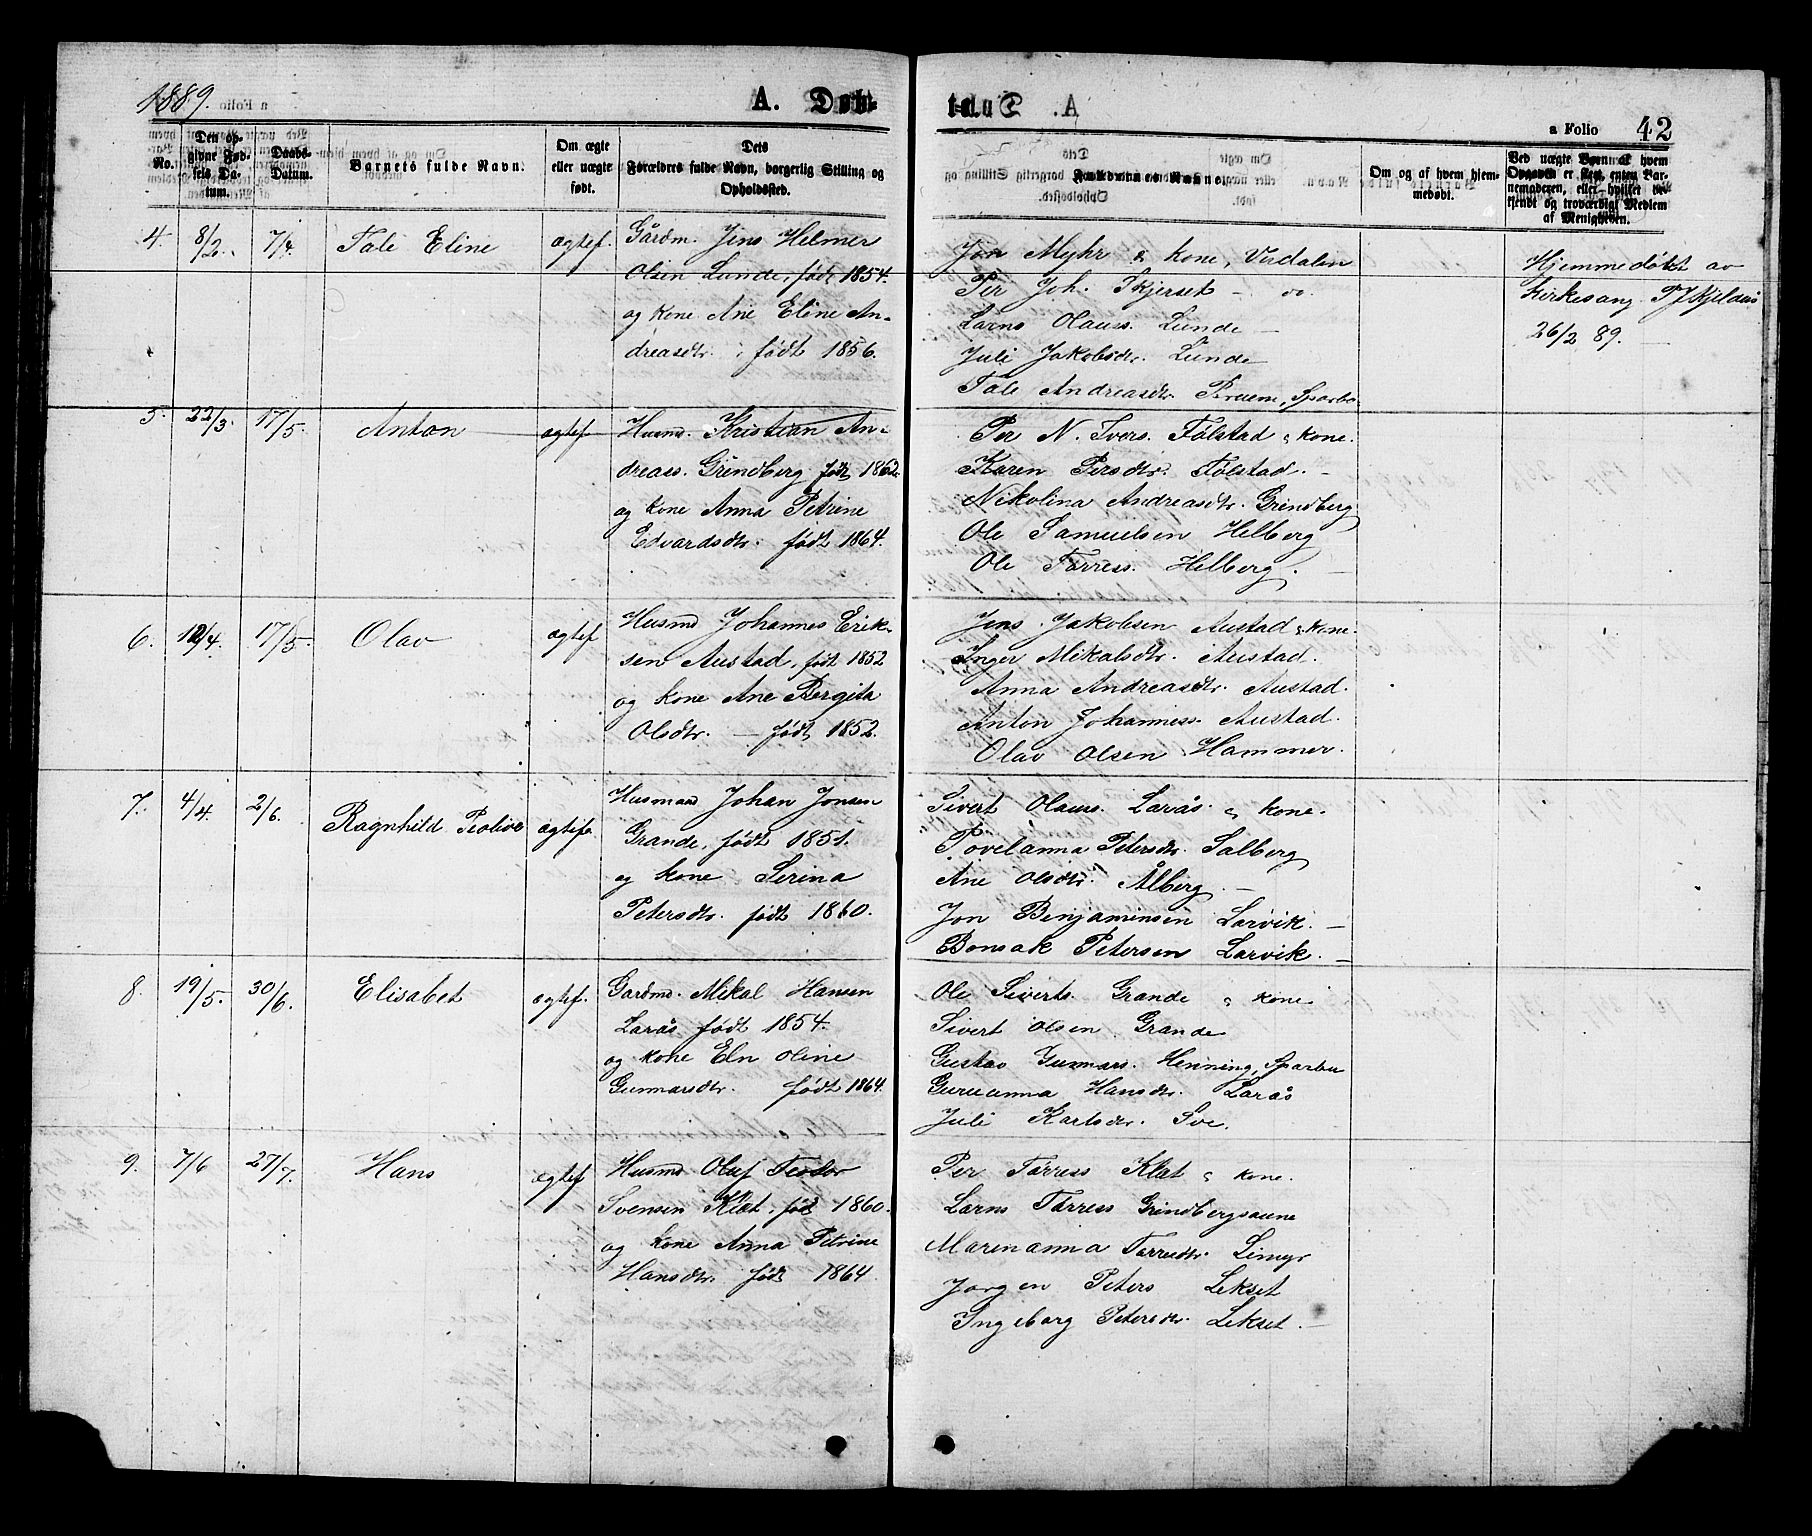 1889.
A. Døb-
a Folio 42
No.
Den opgivne Fødsels Datum.
Daabs-Datum.
Barnets fulde Navn.
Om ægte eller uægte født.
Dets Forældres fulde Navn, borgerlig Stilling og Opholdssted.
Faddernes Navne.
Om og af hvem hjemmedøbt.
4. 8/2. 7/4. Tale Eline ægtef. Gårdm. Jens Helmer
Olsen Lunde, født 1854.
og kone Ane Eline An-
dreasdtr. født 1856.
Jon Myhr & kone, Verdalen
Per Joh. Skjerset - do.
Larns Olauss. Lunde -
Juli Jakobsdr. Lunde
Tale Andreasdtr. , Sparbo.
Hjemmedøbt av
Kirkesang. P J Kjeldås
26/2 89. -
5. 22/3. 17/5. Anton ægtef Husmd. Kristian An-
dreass. Grindberg født 1862
og kone Anna Petrine
Edvardsdtr. født 1864.
Per N. Ivers. Følstad & kone.
Karen Persdtr. Følstad. -
Nikolina Andreasdtr. Grindberg
Ole Samuelsen Helberg
Ole Torress. Helberg. -
6. 12/4. 17/5. Olav ægtef Husmd Johannes Erik-
sen Austad, født 1852
og kone Ane Bergita
Olsdtr. - født 1852.
Jens Jakobsen Austad & kone.
Inger Mikalsdtr. Austad.
Anna Andreasdtr. Austad.
Anton Johanness. Austad.
Olav Olsen Hammer.
7. 4/4. 2/6. Ragnhild Peolive ægtef. Husmand Johan Jonsen
Grande, født 1851.
og kone Serina
Petersdtr. født 1860.
Sivert Olauss. Larås & kone.
Povelanna Petersdtr. Salberg
Ane Olsdtr. Ålberg. -
Jon Benjaminsen Larvik. -
Bonsak Petersen Larvik. -
8. 19/5. 30/6. Elisabet ægtef. Gårdmd. Mikal Hansen
Larås født 1854.
og kone Eln Oline
Gunnarsdtr. født 1864.
Ole Siverts. Grande & kone
Sivert Olsen Grande
Gustav Gunnars. Henning, Sparbu
Guruanna Hansdtr. Larås
Juli Karlsdtr. Sve.
9. 7/6 27/7. Hans ægtef Husmd Oluf Teodor
Svensen Klæt, født 1860.
og kone Anna Petrine
Hansdtr. født 1864.
Per Torress Klæt & kone.
Larns Torress Grindbergsaune
Marenanna Torresdtr. Limyr
Jørgen Peters Lekset
Ingeborg Petersdtr. Lekset. -